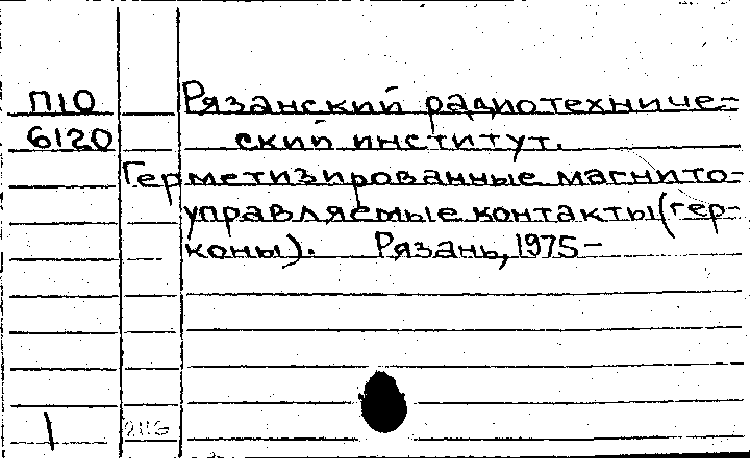 П10 Рязанский радиотехниче-
6120 ский институт.
Герметизированные магнито-
управляемые контакты (гер-
коны). Рязань, 1975-